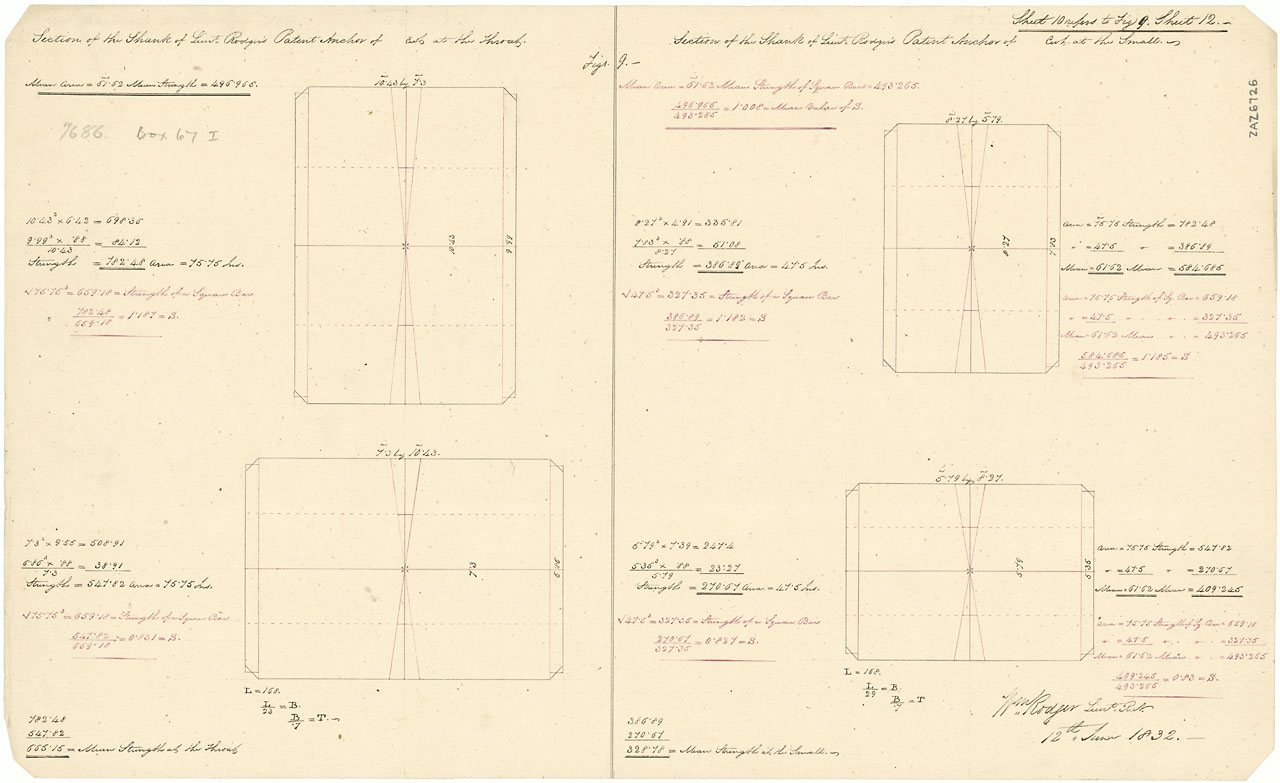 Sheet 10 refers to Fig 9. Sheet 12.-
Section of the Shank of Lieut. Rodger's Patent Anchor of Cwt. at the Throat.
Figs. 9.-
Mean Area = 61.62 Mean Strength = 496.965.
7686. Box 67 I
10.43 by 7.3
10.43² × 6.42 = 698.36
9.99³ × .88 = 84.12
10.43
Strength = 782.48 Area = 75.75 Ins.
√75.75³ = 659.18 = Strength of a Square Bar
782.48 = 1.187 = B.
659.18
10.43
9.99
7.3 by 10.43.
7.3² × 9.55 = 508.91
6.86³ × .88 = 38.91
7.3
Strength = 547.82 Area = 75.75 Ins.
√75.75³ = 659.18 = Strength of a Square Bar
547.82 = 0.831 = B.
659.18
7.3
6.86
L = 168.
L = B.
23
B = T.-
7
782.48
547.82
665.15 = Mean Strength at the Throat
Section of the Shank of Lieut. Rodger's Patent Anchor of Cwt. at the Small.-
Mean Area = 61.62 Mean Strength of Square Bars = 493.265.
496.965 = 1.008 = Mean Value of B.
493.265
ZAZ6726
8.27 by 5.79.
8.27² × 4.91 = 335.81
7.83³ × .88 = 51.08
8.27
Strength = 386.89 Area = 47.5 Ins.
√47.5³ = 327.35 = Strength of a Square Bar
386.89 = 1.182 = B
327.35
8.27
7.83
Area = 75.75 Strength = 782.48
" = 47.5 " = 386.89
Mean = 61.62 Mean = 584.685
Area = 75.75 Strength of Sq. Bar = 659.18
" = 47.5 " . " = 327.35
Mean = 61.62 Mean " . = 493.265
584.685 = 1.185 = B
493.265
5.79 by 8.27.
5.79² × 7.39 = 247.4
5.35³ × .88 = 23.27
5.79
Strength = 270.67 Area = 47.5 Ins.
√47.5³ = 327.35 = Strength of a Square Bar
270.67 = 0.827 = B.
327.35
5.79
5.35
Area = 75.75 Strength = 547.82
" = 47.5 " = 270.67
Mean = 61.62 Mean = 409.245
Area = 75.75 Strength of Sq. Bar = 659.18
" = 47.5 " . " = 327.35
Mean = 61.62 Mean " . = 493.265
409.245 = 0.83 = B.
493.265
L = 168.
L = B
29
B = T
7
386.89
270.67
328.78 = Mean Strength at the Small.-
Wm Rodger Lieut. R.N.
12th June 1832.-